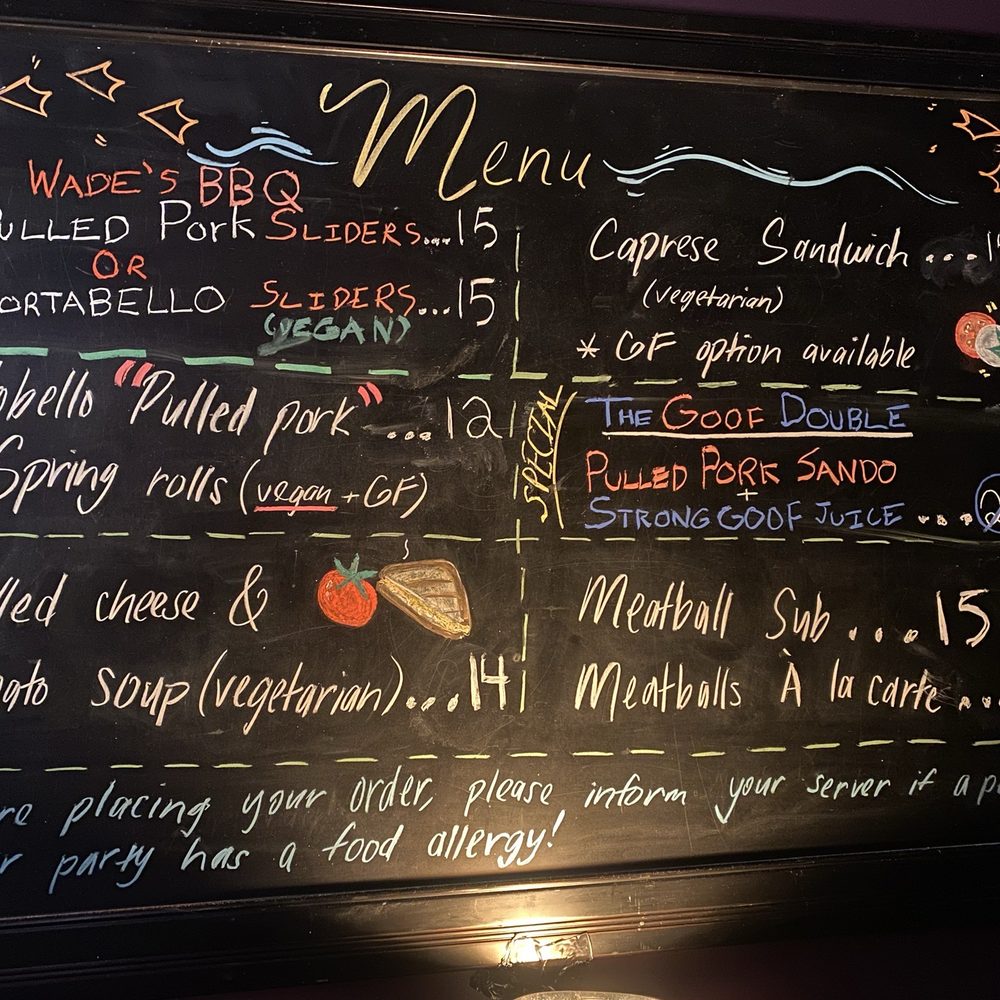 Menu
WADE'S BBQ
PULLED Pork SLIDERS...15
OR
PORTABELLO SLIDERS...15
(VEGAN)
"Pulled pork"...12
Spring rolls (vegan + GF)
cheese &
soup (vegetarian)...14
Caprese Sandwich
(vegetarian)
* GF option available
SPECIAL
THE GOOF DOUBLE
PULLED PORK SANDO
+
STRONG GOOF JUICE
Meatball Sub....15
Meatballs À la carte
placing your order, please inform your server if a
party has a food allergy!